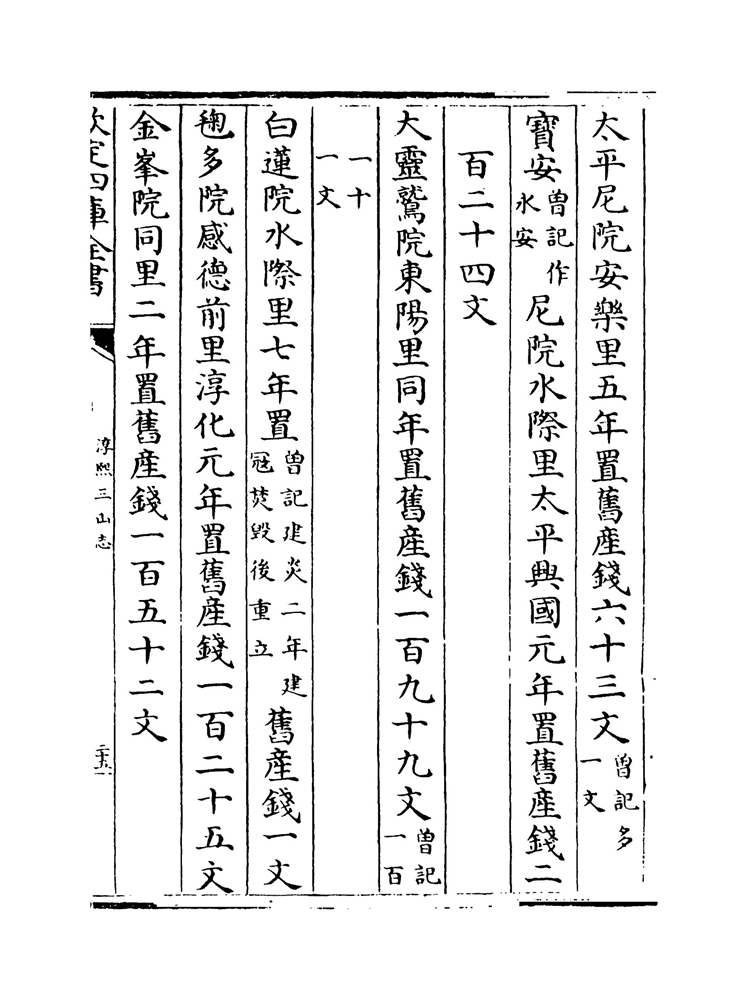 太平尼院安樂里五年置舊産錢六十三文曾記多一文
寶安曾記作永安尼院水際里太平興國元年置舊産錢二
百二十四文
大靈鷲院東陽里同年置舊産錢一百九十九文曾記一百
一十一文
白蓮院水際里七年置曾記建炎二年建冦焚毀後重立舊産錢一文
毱多院感德前里淳化元年置舊産錢一百二十五文
金峯院同里二年置舊産錢一百五十二文
欽定四庫全書
淳熙三山志